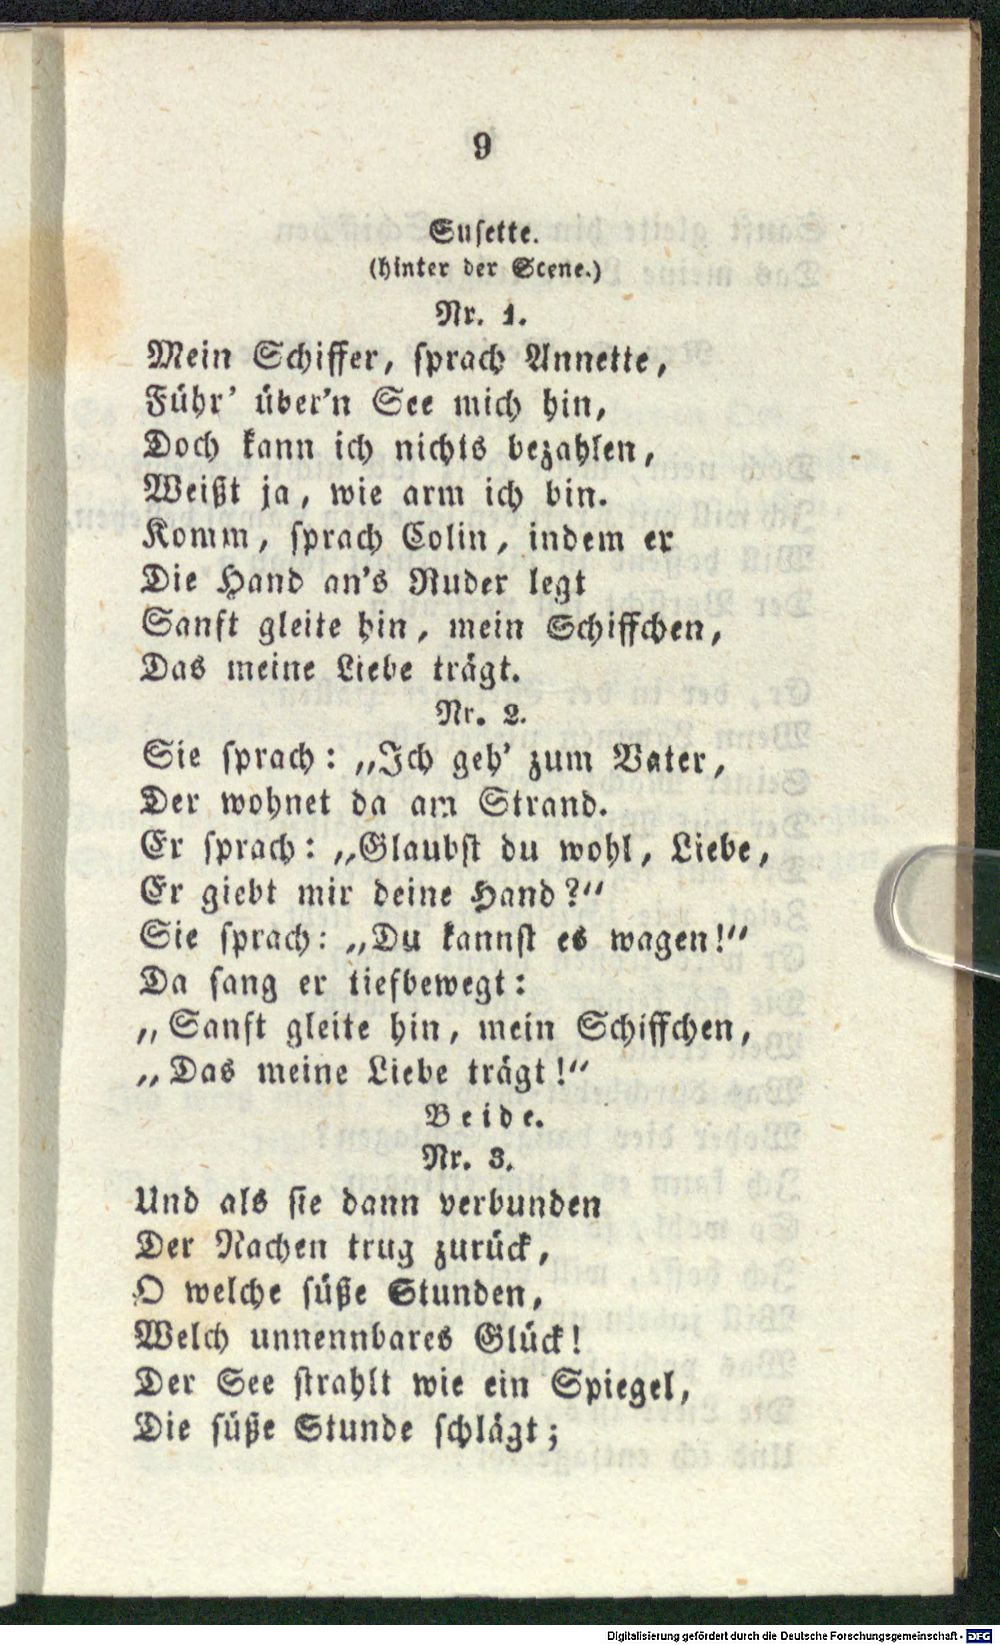 9
Susette.
(hinter der Scene.)
Nr. 1.
Mein Schiffer, sprach Annette,
Führ' über'n See mich hin,
Doch kann ich nichts bezahlen,
Weißt ja, wie arm ich bin.
Komm, sprach Colin, indem er
Die Hand an's Ruder legt
Sanft gleite hin, mein Schiffchen,
Das meine Liebe trägt.
Nr. 2.
Sie sprach: „Ich geh' zum Vater,
Der wohnet da am Strand.
Er sprach: „Glaubst du wohl, Liebe,
Er giebt mir deine Hand?“
Sie sprach: „Du kannst es wagen!“
Da sang er tiefbewegt:
„Sanft gleite hin, mein Schiffchen,
„Das meine Liebe trägt!“
Beide.
Nr. 3.
Und als sie dann verbunden
Der Nachen trug zurück,
O welche süße Stunden,
Welch unnennbares Glück!
Der See strahlt wie ein Spiegel,
Die süße Stunde schlägt;
Digitalisierung gefördert durch die Deutsche Forschungsgemeinschaft - DFG